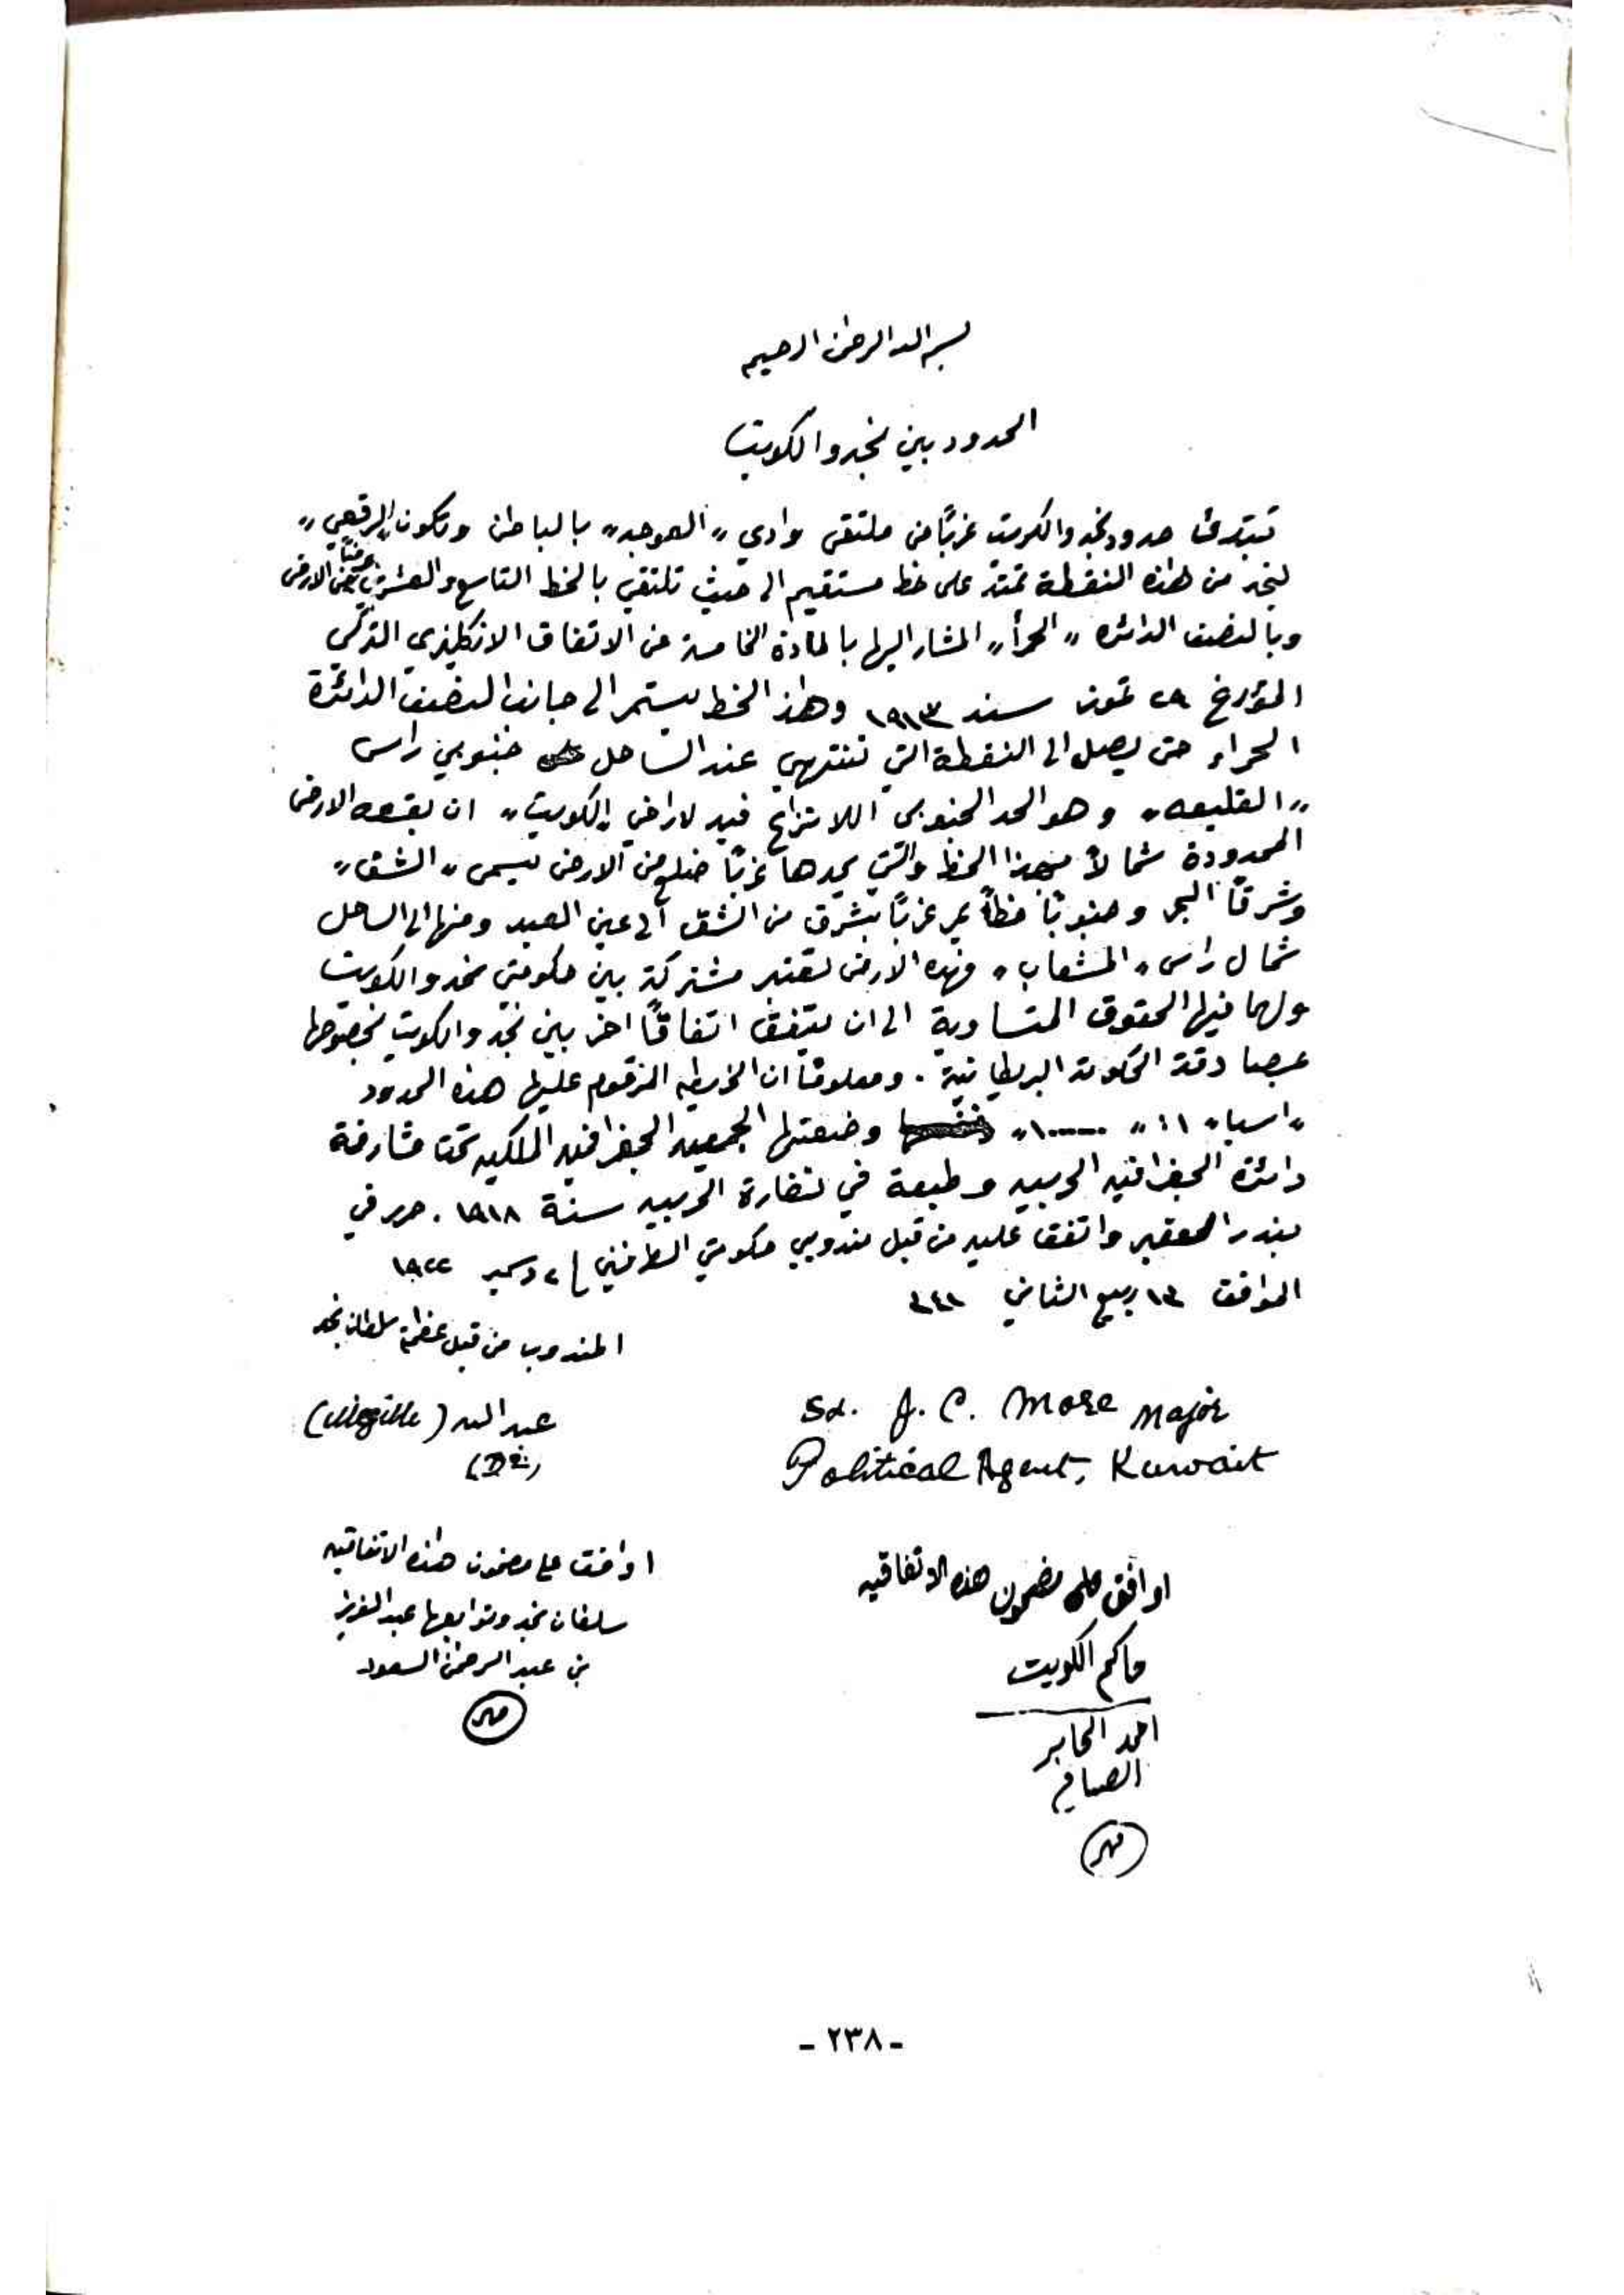 بسم الله الرحمن الرحيم
الحدود بين نجد والكويت
تبتدئ حدود نجد والكويت غربًا من ملتقى وادي "العوجه" بالباطن وتكون "الرقعي"
لنجد من هذه النقطة تمتد على خط مستقيم الى حيث تلتقي بالخط التاسع والعشرين عرضًا من الارض
وبالنصف الدائره "الحمرأ" المشار اليها بالمادة الخامسة من الاتفاق الانكليزي التركي
المؤرخ ٢٩ تموز سنه ١٩١٣ وهذا الخط يستمر الى جانب النصف الدائرة
الحمراء حتى يصل الى النقطة التي تنتهي عند الساحل جنوبي راس
"القليعه" وهو الحد الجنوبي اللا نزاع فيه لاراضي "الكويت" ان بقعه الارض
المحدودة شمالاً بهذا الخط والتي يحدها غربًا ضلع من الارض يسمى "الشق"
وشرقًا البحر وجنوبًا خطاً يمر غربًا بشرق من الشق الى عين العبد ومنها الى الساحل
شمال راس "المشعاب" فهذه الارض تعتبر مشتركة بين حكومتي نجد والكويت
ولهما فيها الحقوق المتساوية الى ان يتفق اتفاقًا اخر بين نجد والكويت بخصوصها
بمصادقة الحكومة البريطانية . ومعلومًا ان الخريطه المرقوم عليها هذه الحدود
"اسيا" ١١ "١٠٠٠٠٠٠" وضعتها الجمعيه الجغرافيه الملكيه تحت مشارفة
دائرة الجغرافيه الحربيه وطبعة في نضارة الحربيه سنة ١٩١٨ . حرر في
بندر العقير واتفق عليه من قبل مندوبي حكومتي الطرفين ٢ دسمبر ١٩٢٢
الموافق ١٣ ربيع الثاني ١٣٤١
المندوب من قبل عظمة سلطان نجد
عبد الله
Sd. J. C. More Major
Political Agent, Kuwait
اوافق على مضمون هذه الاتفاقيه
سلطان نجد وتوابعها عبد العزيز
بن عبد الرحمن السعود
مهر
اوافق على مضمون هذه الاتفاقيه
حاكم الكويت
احمد الجابر
الصباح
مهر
- ٢٣٨ -